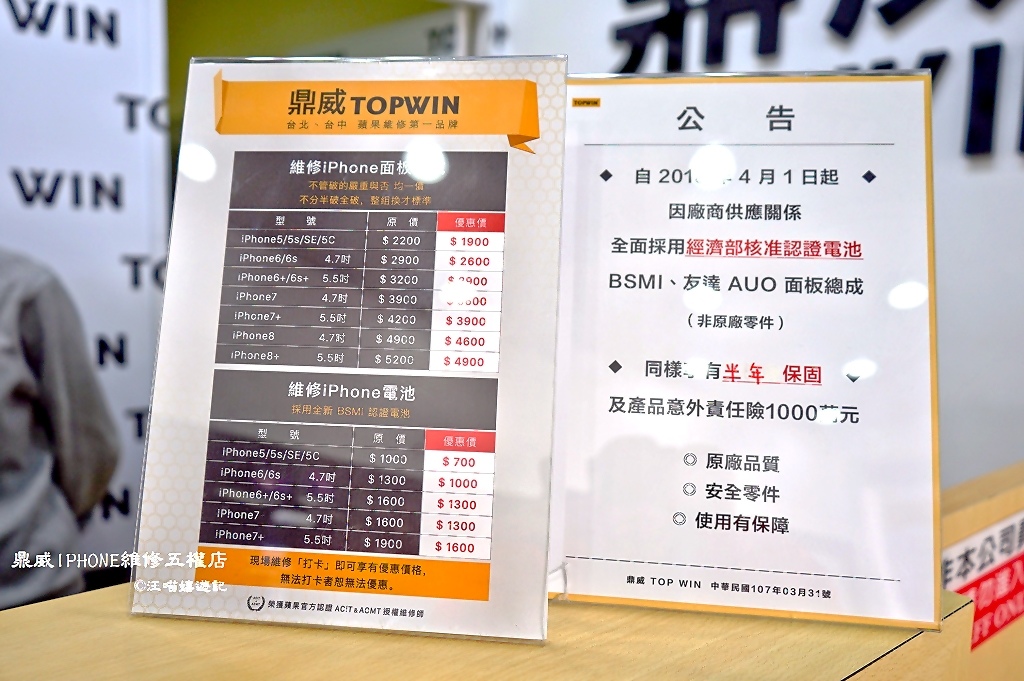 WIN
WIN
鼎威 TOPWIN
台北、台中 蘋果維修第一品牌
維修iPhone面板
不管破的嚴重與否 均一價
不分半破全破，整組換才標準
型 號 原 價 優惠價
iPhone5/5s/SE/5C $ 2200 $ 1900
iPhone6/6s 4.7吋 $ 2900 $ 2600
iPhone6+/6s+ 5.5吋 $ 3200
iPhone7 4.7吋 $ 3900
iPhone7+ 5.5吋 $ 4200 $ 3900
iPhone8 4.7吋 $ 4900 $ 4600
iPhone8+ 5.5吋 $ 5200 $ 4900
維修iPhone電池
採用全新 BSMI 認證電池
型 號 原 價 優惠價
iPhone5/5s/SE/5C $ 1000 $ 700
iPhone6/6s 4.7吋 $ 1300 $ 1000
iPhone6+/6s+ 5.5吋 $ 1600 $ 1300
iPhone7 4.7吋 $ 1600 $ 1300
iPhone7+ 5.5吋 $ 1900 $ 1600
現場維修「打卡」即可享有優惠價格，
無法打卡者恕無法優惠。
榮獲蘋果官方認證 ACIT & ACMT 授權維修師
TOPWIN
公 告
◆ 自 201 年 4 月 1 日起 ◆
因廠商供應關係
全面採用經濟部核准認證電池
BSMI、友達 AUO 面板總成
（非原廠零件）
◆ 同樣 有半年 保固 ◆
及產品意外責任險1000萬元
◎ 原廠品質
◎ 安全零件
◎ 使用有保障
鼎威 TOP WIN 中華民國107年03月31號
非本公司
勿進入
鼎威IPHONE維修五權店
©汪喵嬉遊記